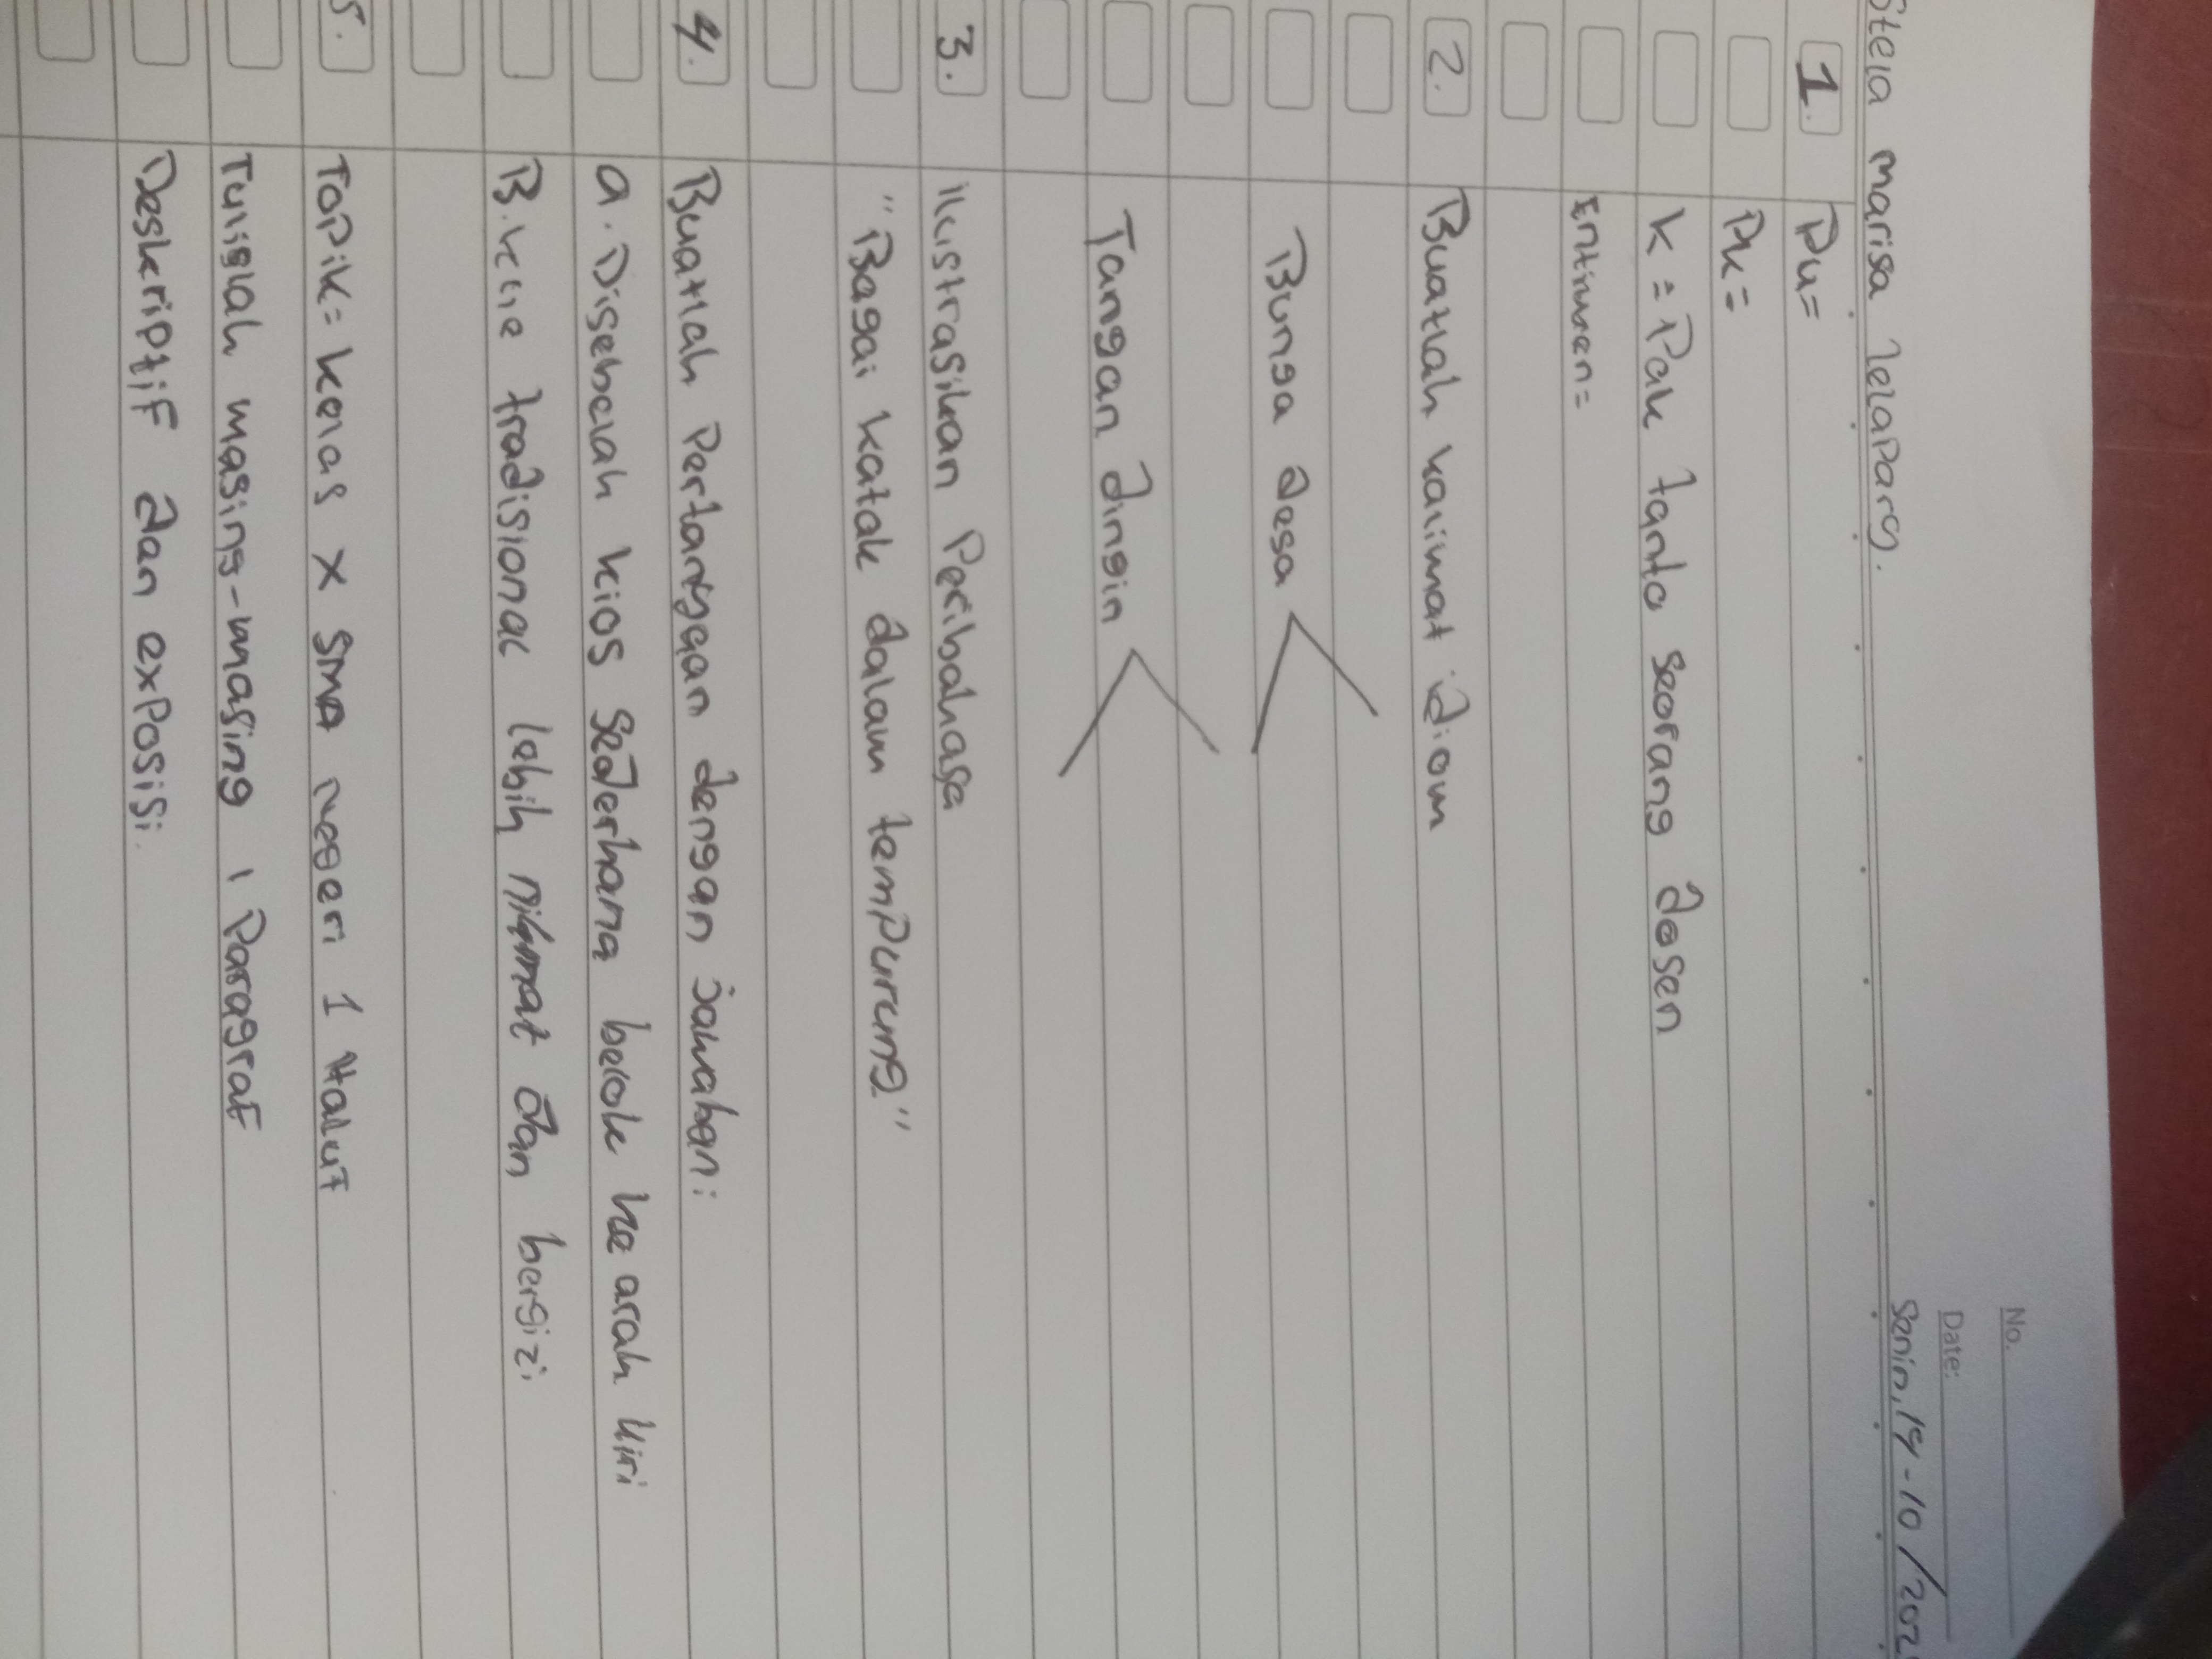 No.
Date:
Senin, 14-10/202
Stela marisa lelapary.
1. Pu=
Pk=
K = Pak tanto seorang dosen
Entimen=
2. Buatlah kalimat idiom
Bunga desa
Tangan dingin
3. ilustrasikan Peribahasa
"Bagai katak dalam tempurung"
4. Buatlah Pertanyaan dengan jawaban:
a. Disebelah kios sederhana belok ke arah kiri
B. kue tradisional lebih nikmat dan bergizi
5. Topik= kelas x SMA negeri 1 Halut
Tulislah masing-masing 1 Paragraf
Deskriptif dan exposisi